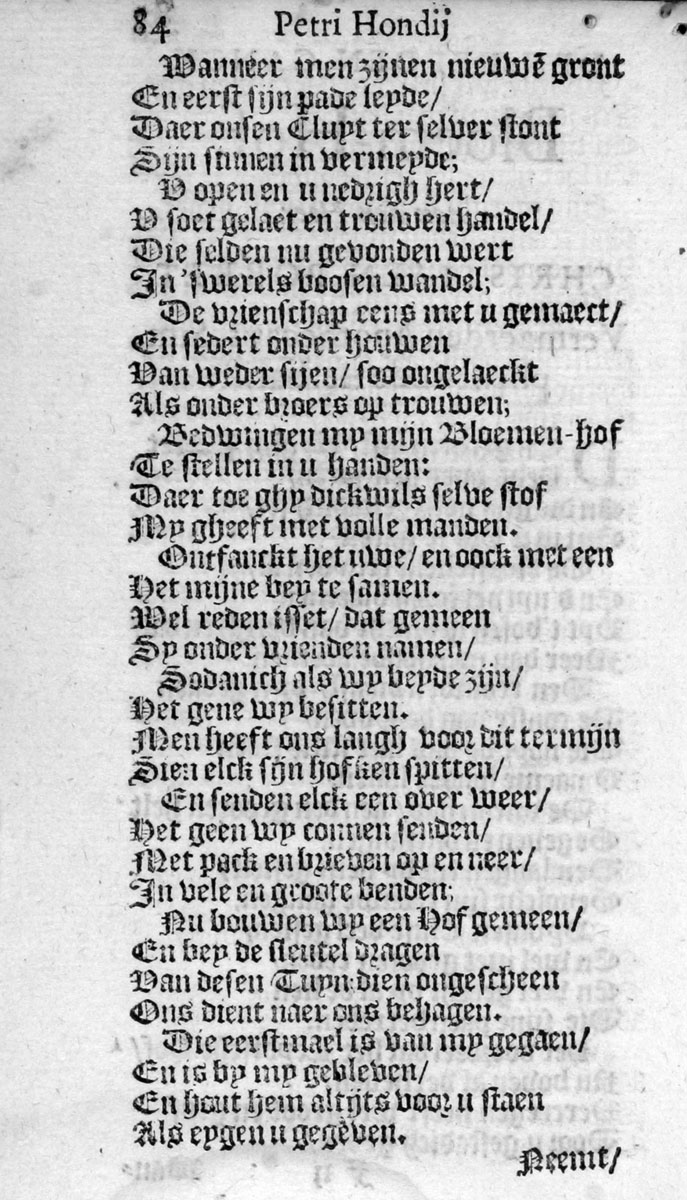 84 Petri Hondij
Wanneer men zijnen nieuwē gront
En eerst sijn pade leyde/
Daer onsen Cluyt ter selver stont
Sijn sinnen in vermeyde;
V open en u nedrigh hert/
V soet gelaet en trouwen handel/
Die selden nu gevonden wert
In 'swerels boosen wandel;
De vrienschap eens met u gemaect/
En sedert onder houwen
Van weder sijen/ soo ongelaeckt
Als onder broers op trouwen;
Bedwingen my mijn Bloemen-hof
Te stellen in u handen:
Daer toe ghy dickwils selve stof
My gheeft met volle manden.
Ontfanckt het uwe/ en oock met een
Het mijne bey te samen.
Wel reden isset/ dat gemeen
Sy onder vrienden namen/
Sodanich als wy beyde zijn/
Het gene wy besitten.
Men heeft ons langh voor dit termijn
Sien elck sijn hofken spitten/
En senden elck een over weer/
Het geen wy connen senden/
Met pack en brieven op en neer/
In vele en groote benden;
Nu bouwen wy een Hof gemeen/
En bey de sleutel dragen
Van desen Tuyn: dien ongescheen
Ons dient naer ons behagen.
Die eerstmael is van my gegaen/
En is by my gebleven/
En hout hem altijts voor u staen
Als eygen u gegeven.
Neemt/